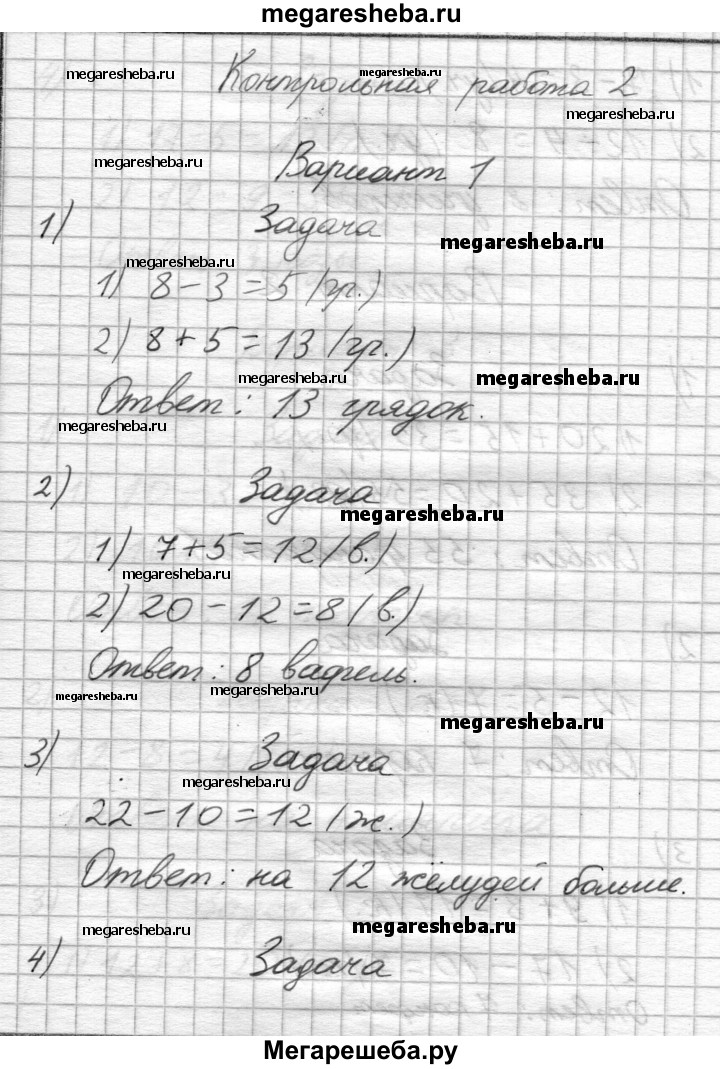 megaresheba.ru
megaresheba.ru
megaresheba.ru
Контрольная работа 2
megaresheba.ru
megaresheba.ru
Вариант 1
1) Задача
megaresheba.ru
megaresheba.ru
1) 8 - 3 = 5 (гр.)
2) 8 + 5 = 13 (гр.)
megaresheba.ru
megaresheba.ru
Ответ: 13 грядок.
megaresheba.ru
2) Задача
megaresheba.ru
1) 7 + 5 = 12 (в.)
megaresheba.ru
2) 20 - 12 = 8 (в.)
Ответ: 8 вафель.
megaresheba.ru
megaresheba.ru
megaresheba.ru
3) Задача
megaresheba.ru
22 - 10 = 12 (ж.)
Ответ: на 12 жёлудей больше.
megaresheba.ru
megaresheba.ru
4) Задача
Мегарешеба.ру